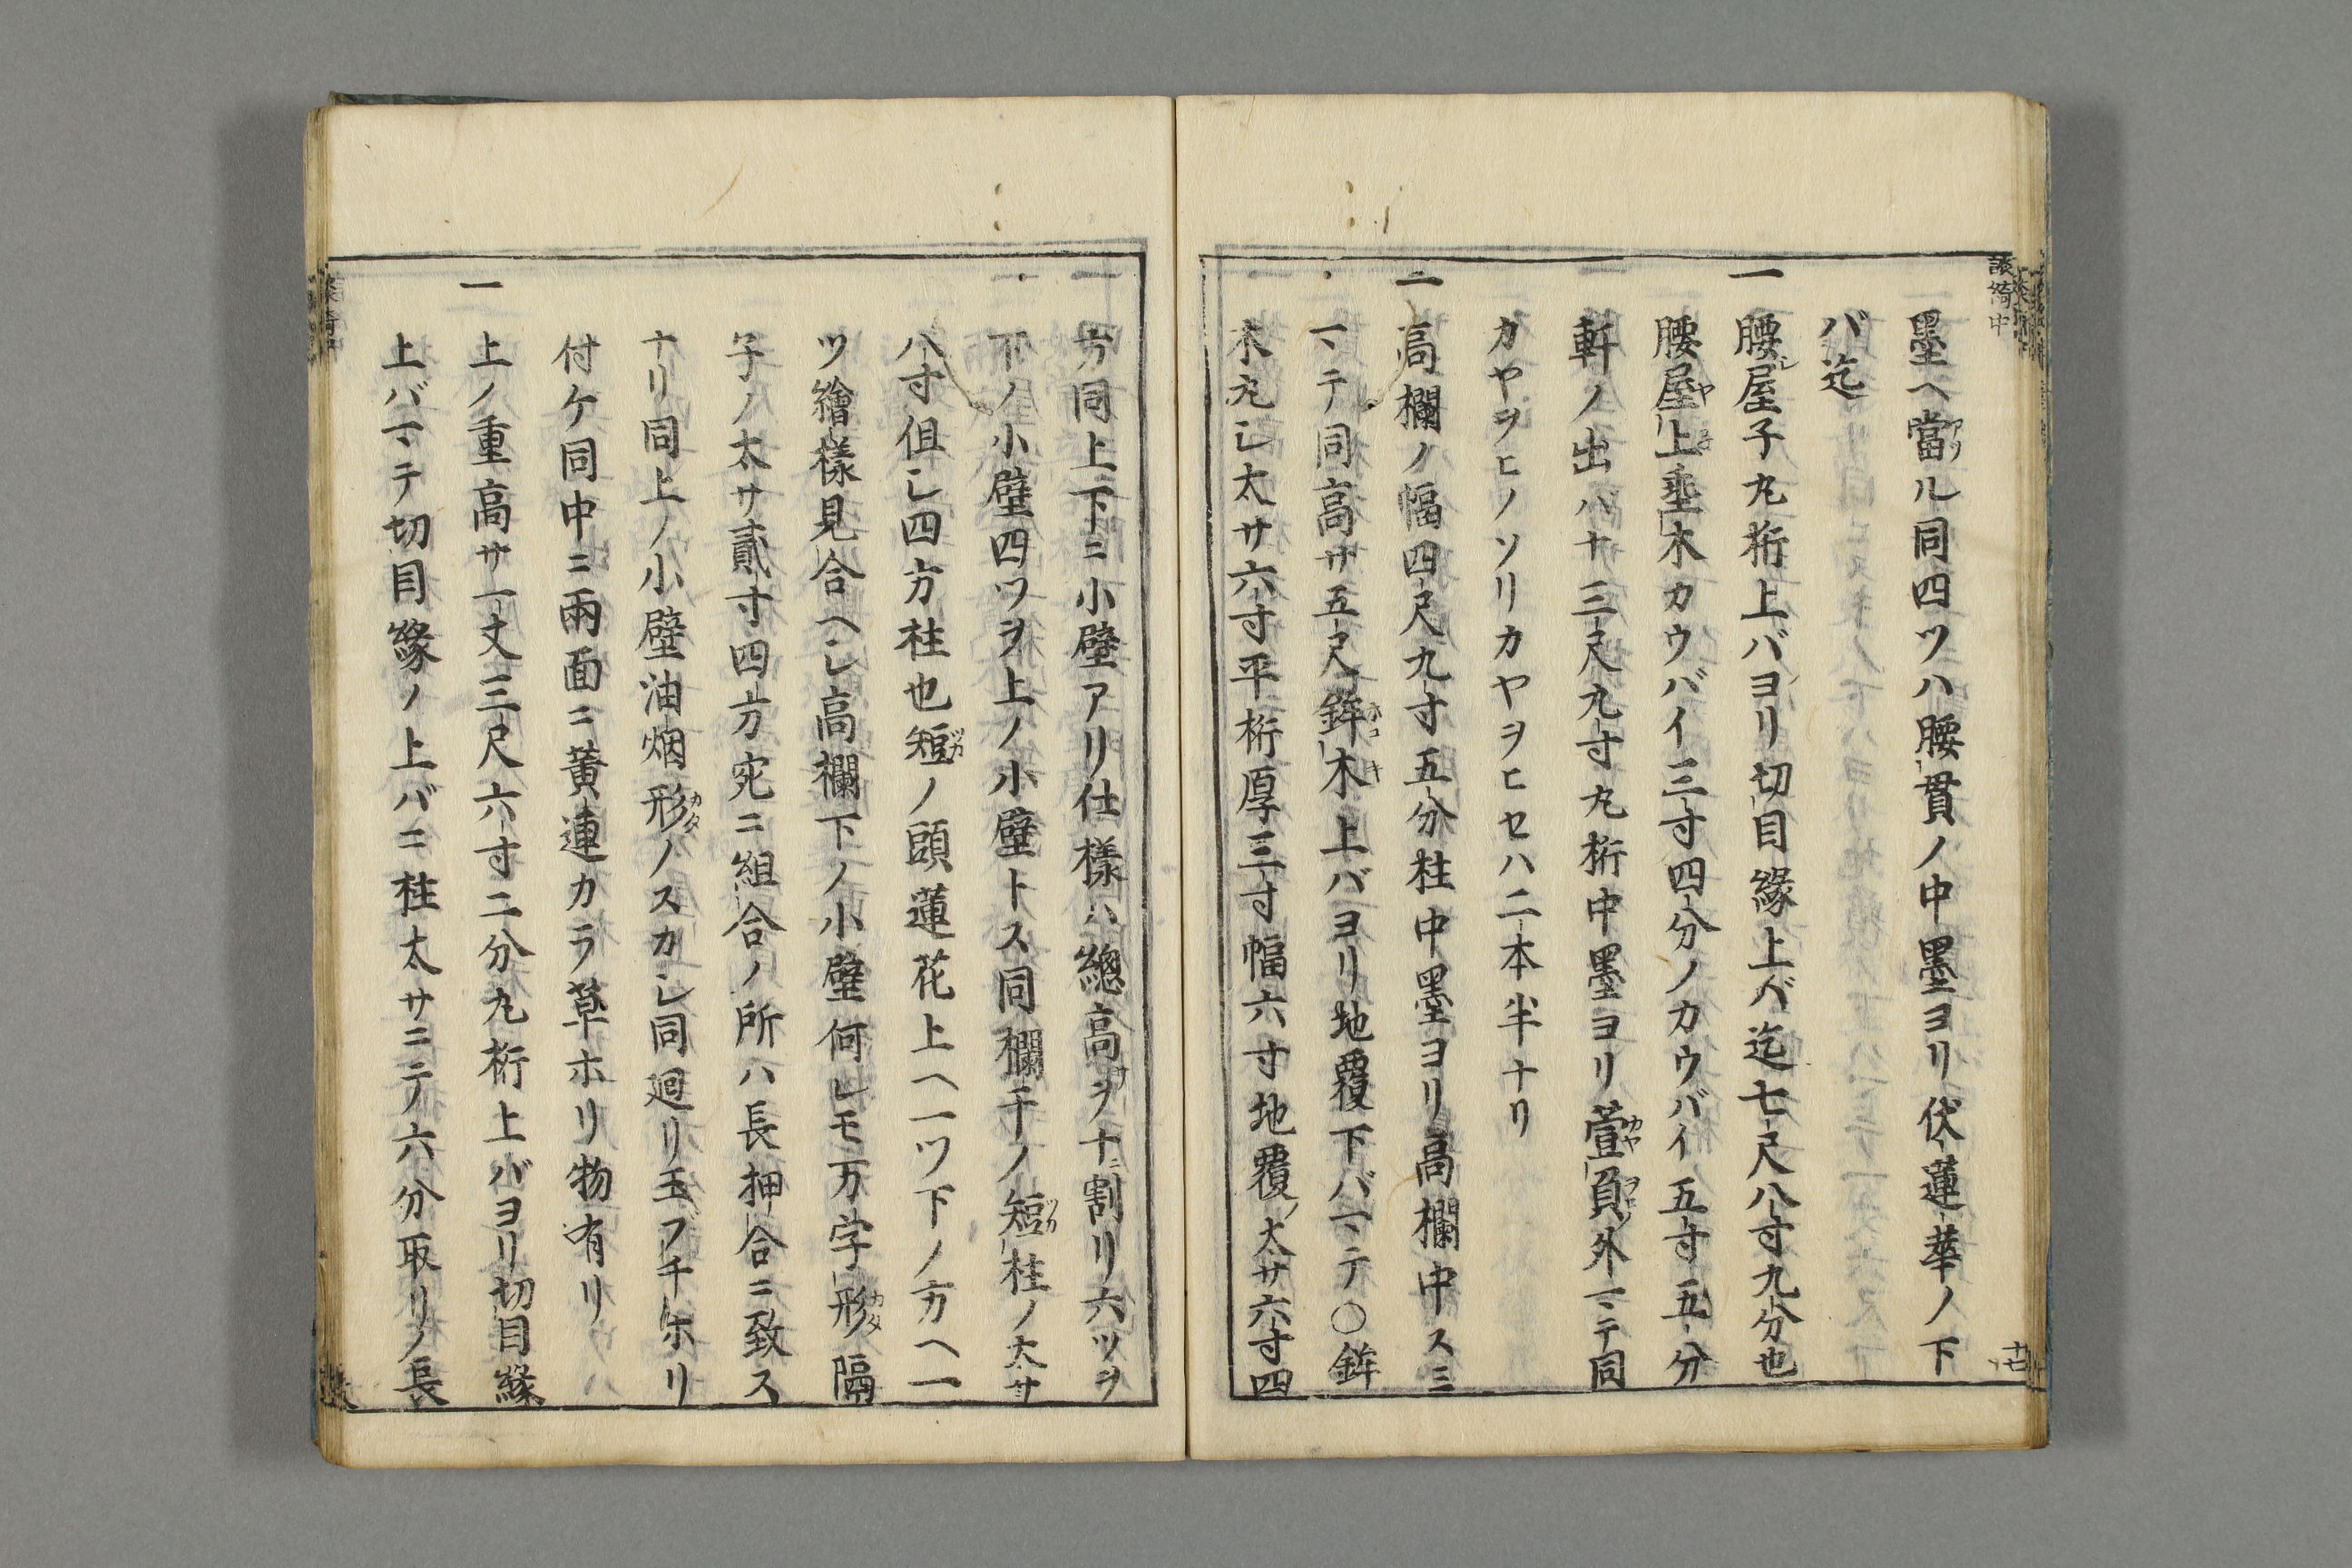 墨ヘ當ル同四ツハ腰貫ノ中墨ヨリ伏蓮華ノ下
バ迄
一腰屋子丸桁上バヨリ切目緣上バ迄七尺八寸九分也
腰屋上埀木カウバイ三寸四分ノカウバイ五寸五分
軒ノ出ハ十三尺九寸丸桁中墨ヨリ萱負外ニテ同
カヤヲヒノソリカヤヲヒセハ二本半ナリ
高欄ノ幅四尺九寸五分柱中墨ヨリ高欄中スミ
ニテ同高サ五尺鉾木上バヨリ地覆下バニテ○鉾
木丸シ太サ六寸平桁厚三寸幅六寸地覆太サ六寸四
方同上下ニ小壁アリ仕樣ハ總高ヲ十割リ六ツヲ
下ノ小壁四ツヲ上ノ小壁トス同欄干ノ短柱ノ太サ
八寸但シ四方柱也短ノ頭蓮花上ヘ一ツ下ノ方ヘ一
ツ繪樣見合ヘシ高欄下ノ小壁何レモ万字形隔
子ノ太サ貳寸四方宛ニ組合ノ所ハ長押合ニ致ス
ナリ同上ノ小壁油烟形ノスカシ同廻リ玉ブチホリ
付ケ同中ニ兩面ニ黄連カラ草ホリ物有リ
一上ノ重高サ一丈三尺六寸二分丸桁上バヨリ切目緣
上バニテ切目緣ノ上バニ柱太サニテ六分取リノ長